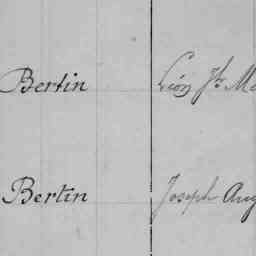 Bertin Léon Jh M
Bertin Joseph Aug